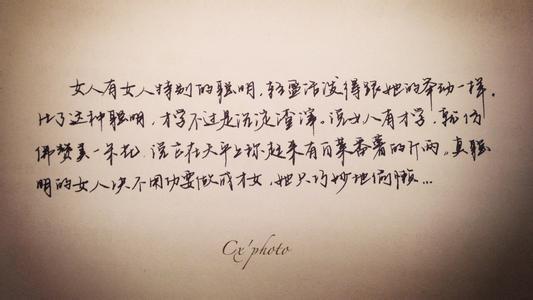 女人有女人特别的聪明，轻盈活泼得跟她的举动一样。
比了这种聪明，才学不过是沉淀渣滓。说女人有才学，就仿
佛赞美一朵花，说它在天平上称起来有白菜番薯的斤两。真聪
明的女人决不用功要做成才女，她只巧妙地偷懒…
Cx'photo